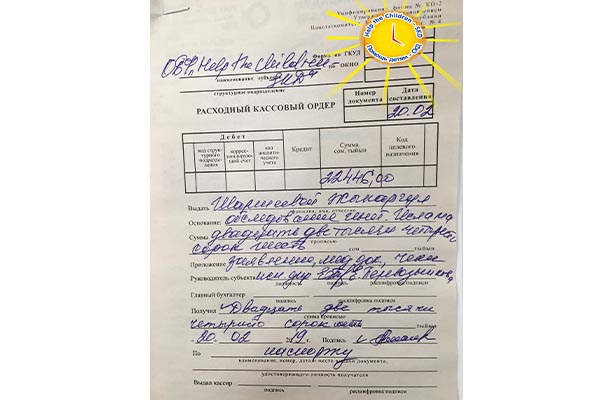 Унифицированная форма № КО-2
Help the Children - SKD
Помощь детям - СКД
Форма по ГКУД
по ОКПО
ОБФ „Help the Children
SKD"
наименование субъекта
структурное подразделение
РАСХОДНЫЙ КАССОВЫЙ ОРДЕР
Номер документа
Дата составления
20.02
Дебет
код структурного подразделения
корреспондирующий счет
код аналитического учета
Кредит
Сумма. сом. тыйын
Код целевого назначения
22446,00
Выдать
фамилия, имя, отчество
Основание: обследование
Сумма двадцать две тысячи четыреста
сорок шесть прописью сом тыйын
Приложение заявление, мед док, чеки
Руководитель субъекта
подпись расшифровка подписи
Главный бухгалтер
подпись расшифровка подписи
Получил Двадцать две тысячи
сумма прописью
четыреста сорок шесть тыйын
20. 02 2019 г. Подпись
По паспорту
наименование, номер, дата и место выдачи документа,
удостоверяющего личность получателя
Выдал кассир
подпись расшифровка подписи